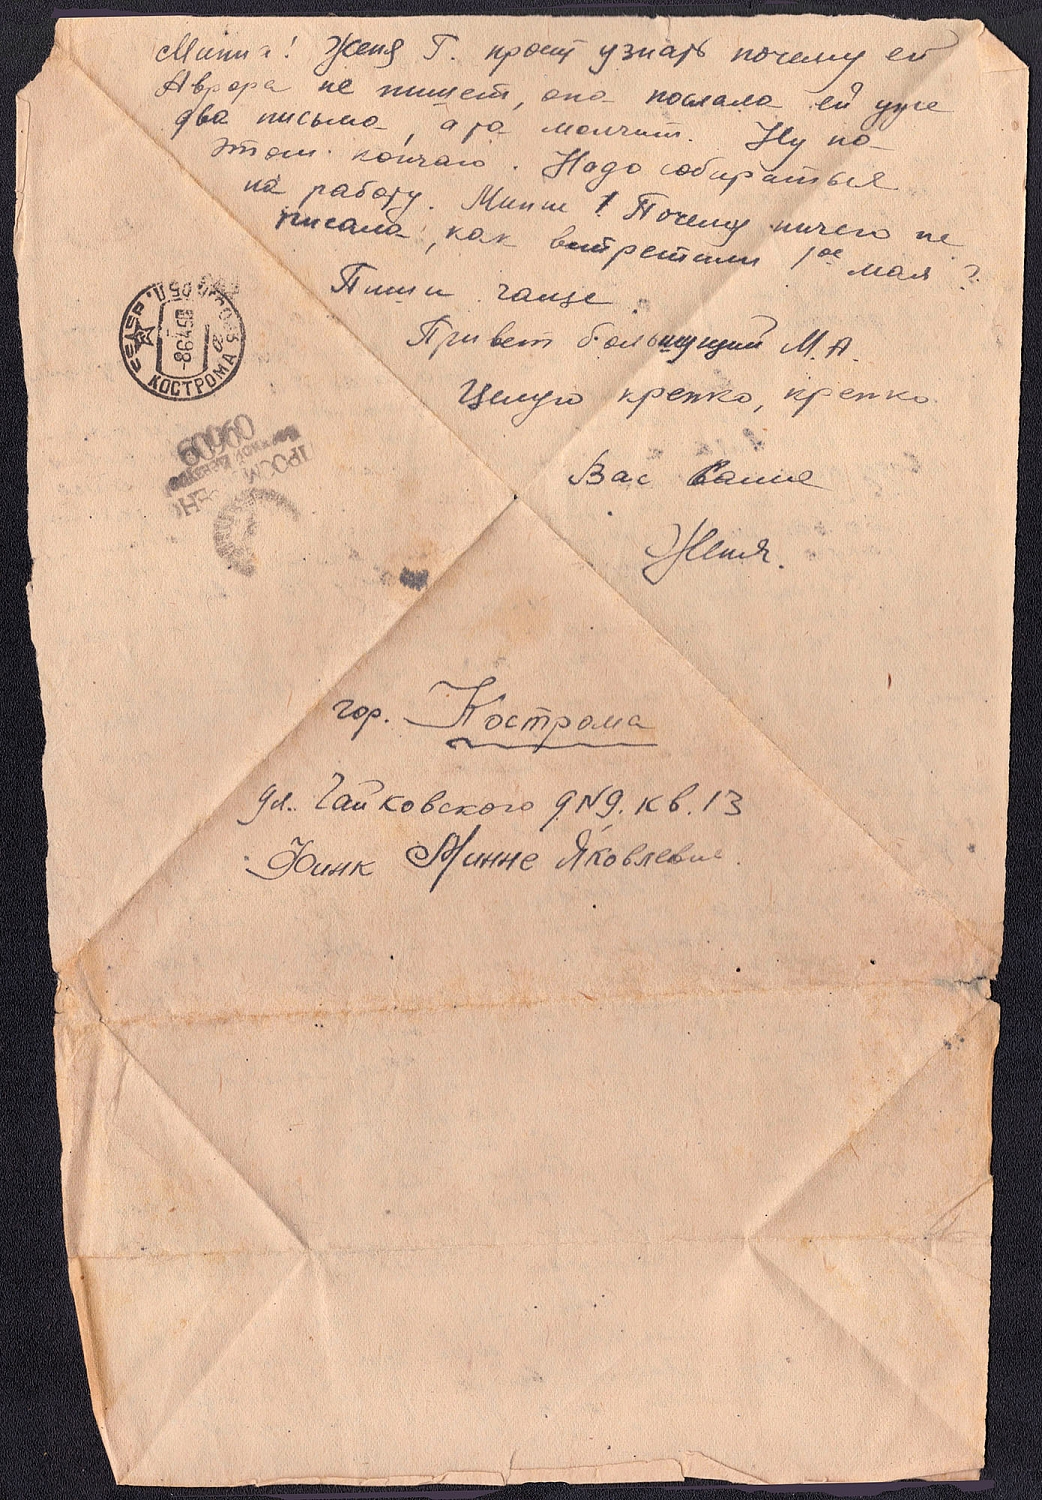 Минна! Женя Г. просит узнать почему ей
Аврора не пишет, она послала ей уже
два письма, а та молчит. Ну на
этом кончаю. Надо собираться
на работу. Минна! Почему ничего не
писала, как встретили 1ое мая?
Пиши чаще
Привет большущий М.А.
Целую крепко, крепко
Вас Ваша
Женя.
КОСТРОМА
ПРОСМ
09609
гор. Кострома
ул. Чайковского д N9. кв. 13
Финк Минне Яковлевне.